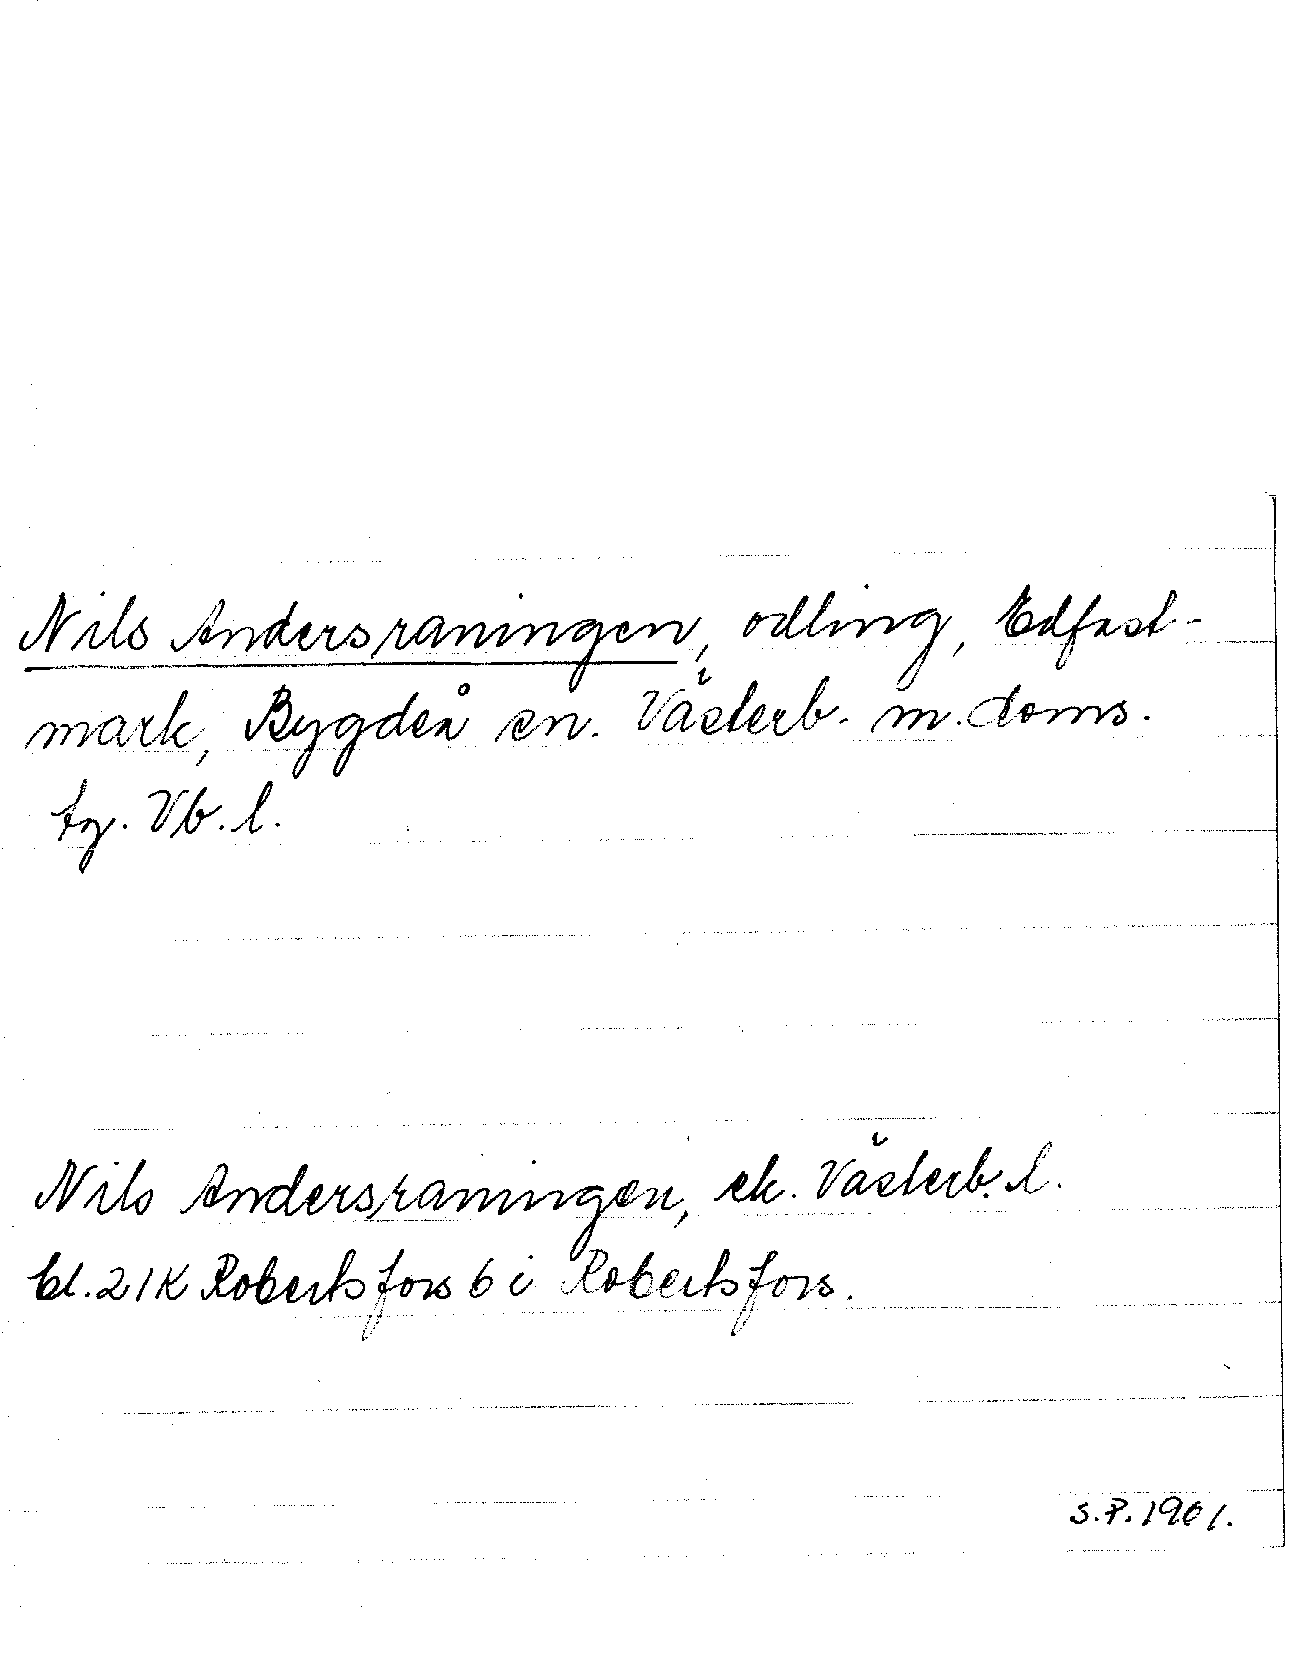 Nils Andersraningen, odling, Edfast-
mark, Bygdeå sn. Västerb. m. doms.
tg. Vb. l.
Nils Andersraningen, ek. Västerb. l.
bl. 21K Robertsfors 6 i Robertsfors.
S.P. 1961.